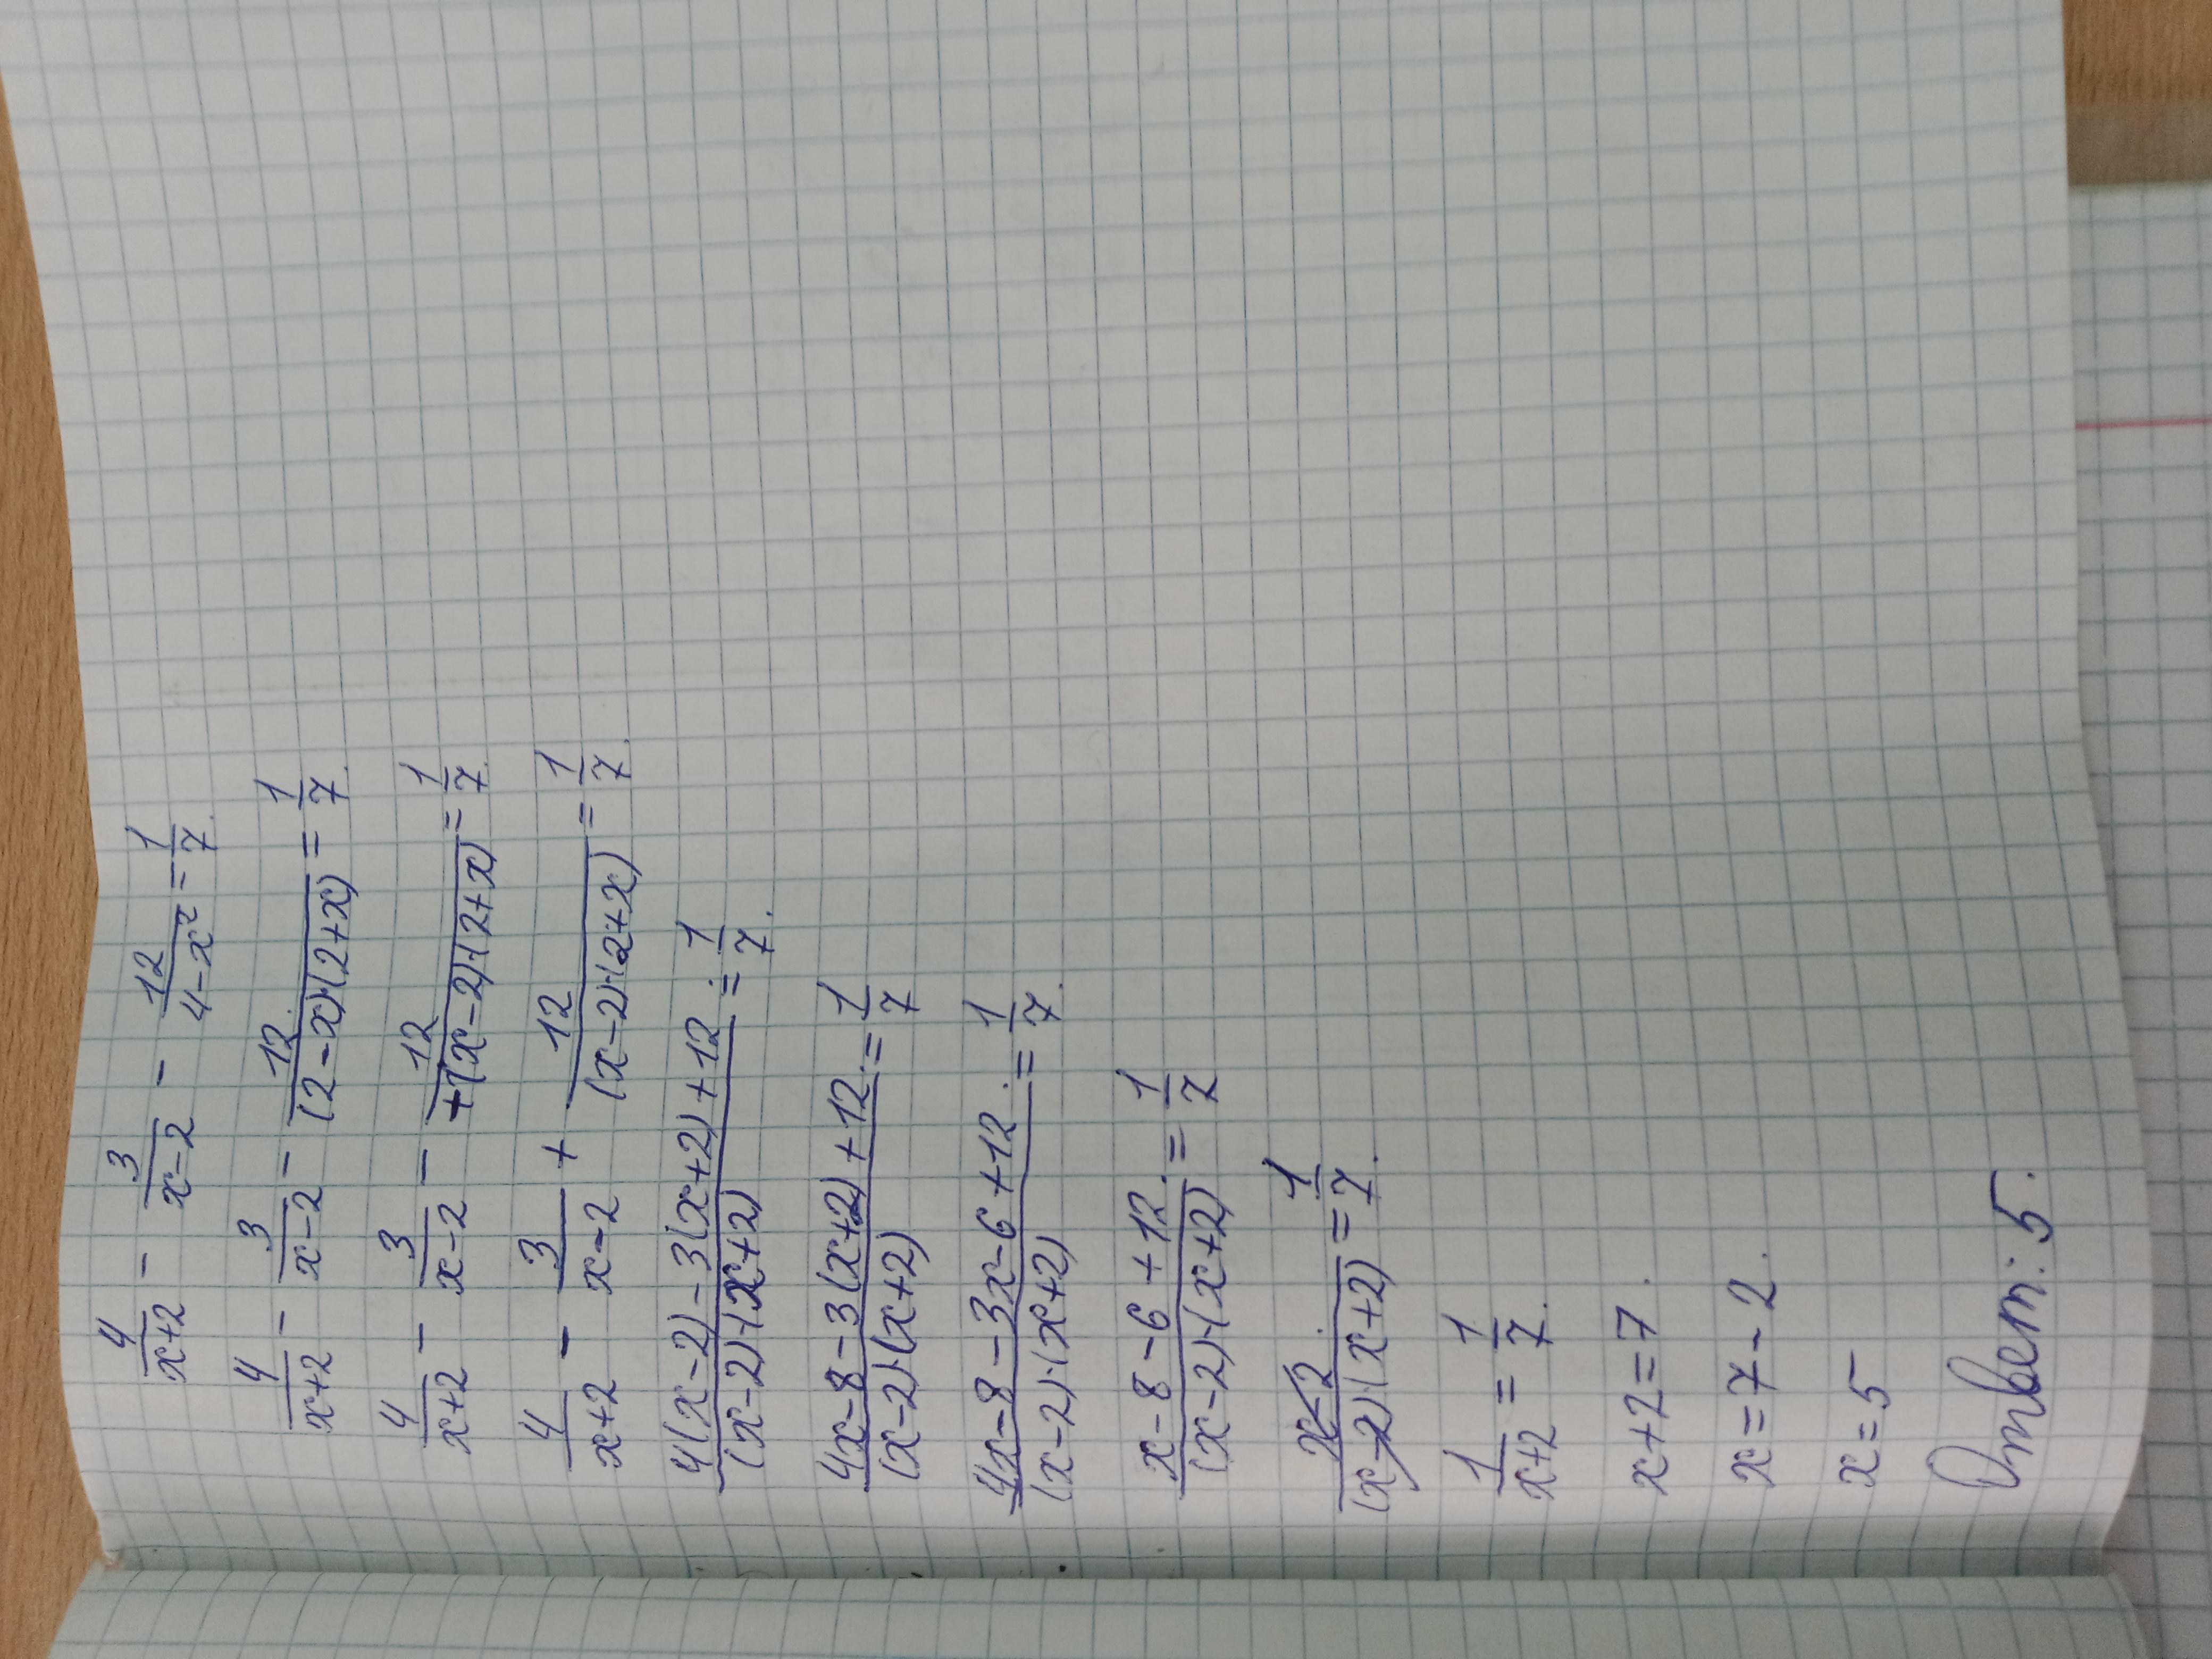 4/(x+2) - 3/(x-2) - 12/(4-x²) = 1/7.
4/(x+2) - 3/(x-2) - 12/((2-x)·(2+x)) = 1/7.
4/(x+2) - 3/(x-2) - 12/(+(x-2)·(2+x)) = 1/7.
4/(x+2) - 3/(x-2) + 12/((x-2)·(2+x)) = 1/7.
(4(x-2)-3(x+2)+12)/((x-2)·(x+2)) = 1/7.
(4x-8-3(x+2)+12)/((x-2)·(x+2)) = 1/7
(4x-8-3x-6+12)/((x-2)·(x+2)) = 1/7.
(x-8-6+12)/((x-2)·(x+2)) = 1/7
(x-2)/((x-2)·(x+2)) = 1/7.
1/(x+2) = 1/7.
x+2=7.
x=7-2.
x=5
Ответ: 5.